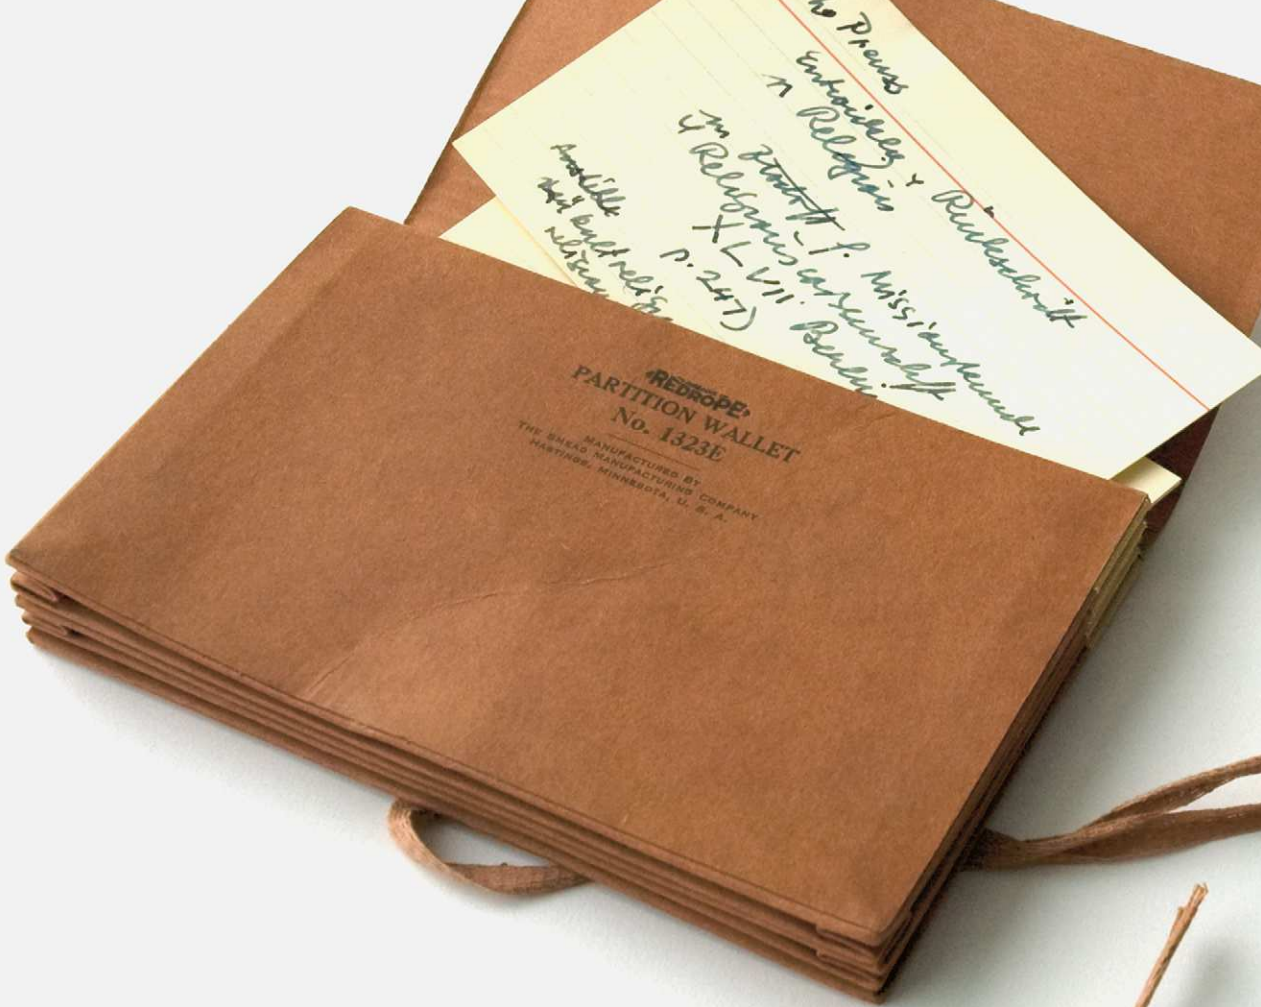 Preuss
Entwicklg & Rückschritt
n Religiös
In Ztschft f. Missionskunde
& Religionswissenschaft
XLVII. Berlin
p. 247)
REDROPE
PARTITION WALLET
No. 1323E
MANUFACTURED BY
THE SMEAD MANUFACTURING COMPANY
HASTINGS, MINNESOTA, U. S. A.